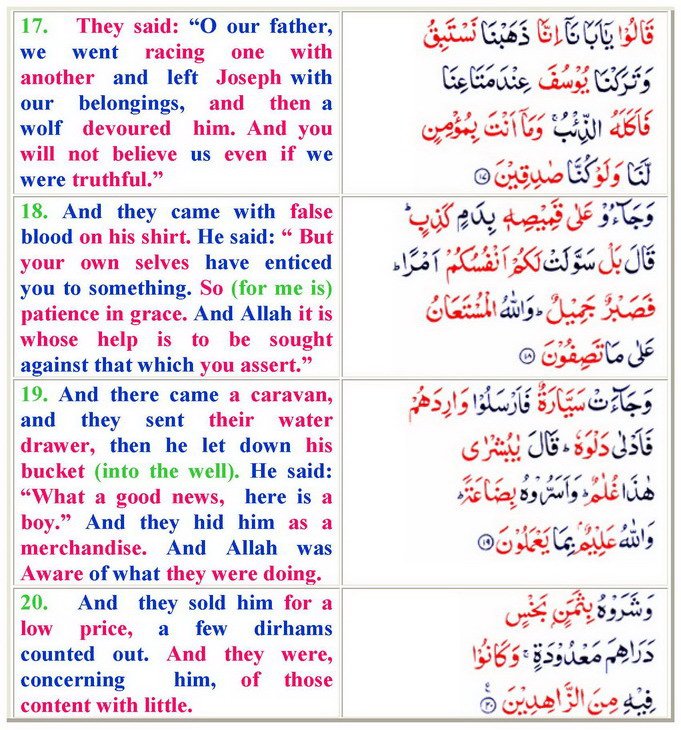 17. They said: “O our father,
we went racing one with
another and left Joseph with
our belongings, and then a
wolf devoured him. And you
will not believe us even if we
were truthful.”
قَالُوْا يٰۤاَبَانَاۤ اِنَّا ذَهَبْنَا نَسْتَبِقُ
وَتَرَكْنَا يُوْسُفَ عِنْدَ مَتَاعِنَا
فَاَكَلَهُ الذِّئْبُ ۚ وَمَاۤ اَنْتَ بِمُؤْمِنٍ
لَّنَا وَلَوْ كُنَّا صٰدِقِيْنَ ۝۱۷
18. And they came with false
blood on his shirt. He said: “ But
your own selves have enticed
you to something. So (for me is)
patience in grace. And Allah it is
whose help is to be sought
against that which you assert.”
وَجَآءُوْ عَلٰى قَمِيْصِهٖ بِدَمٍ كَذِبٍ ؕ
قَالَ بَلْ سَوَّلَتْ لَكُمْ اَنْفُسُكُمْ اَمْرًا ؕ
فَصَبْرٌ جَمِيْلٌ ؕ وَاللّٰهُ الْمُسْتَعَانُ
عَلٰى مَا تَصِفُوْنَ ۝۱۸
19. And there came a caravan,
and they sent their water
drawer, then he let down his
bucket (into the well). He said:
“What a good news, here is a
boy.” And they hid him as a
merchandise. And Allah was
Aware of what they were doing.
وَجَآءَتْ سَيَّارَةٌ فَاَرْسَلُوْا وَارِدَهُمْ
فَاَدْلٰى دَلْوَهٗ ؕ قَالَ يٰبُشْرٰى
هٰذَا غُلٰمٌ ؕ وَاَسَرُّوْهُ بِضَاعَةً ؕ
وَاللّٰهُ عَلِيْمٌۢ بِمَا يَعْمَلُوْنَ ۝۱۹
20. And they sold him for a
low price, a few dirhams
counted out. And they were,
concerning him, of those
content with little.
وَشَرَوْهُ بِثَمَنٍۭ بَخْسٍ
دَرَاهِمَ مَعْدُوْدَةٍ ۚ وَكَانُوْا
فِيْهِ مِنَ الزَّاهِدِيْنَ ۝۲۰